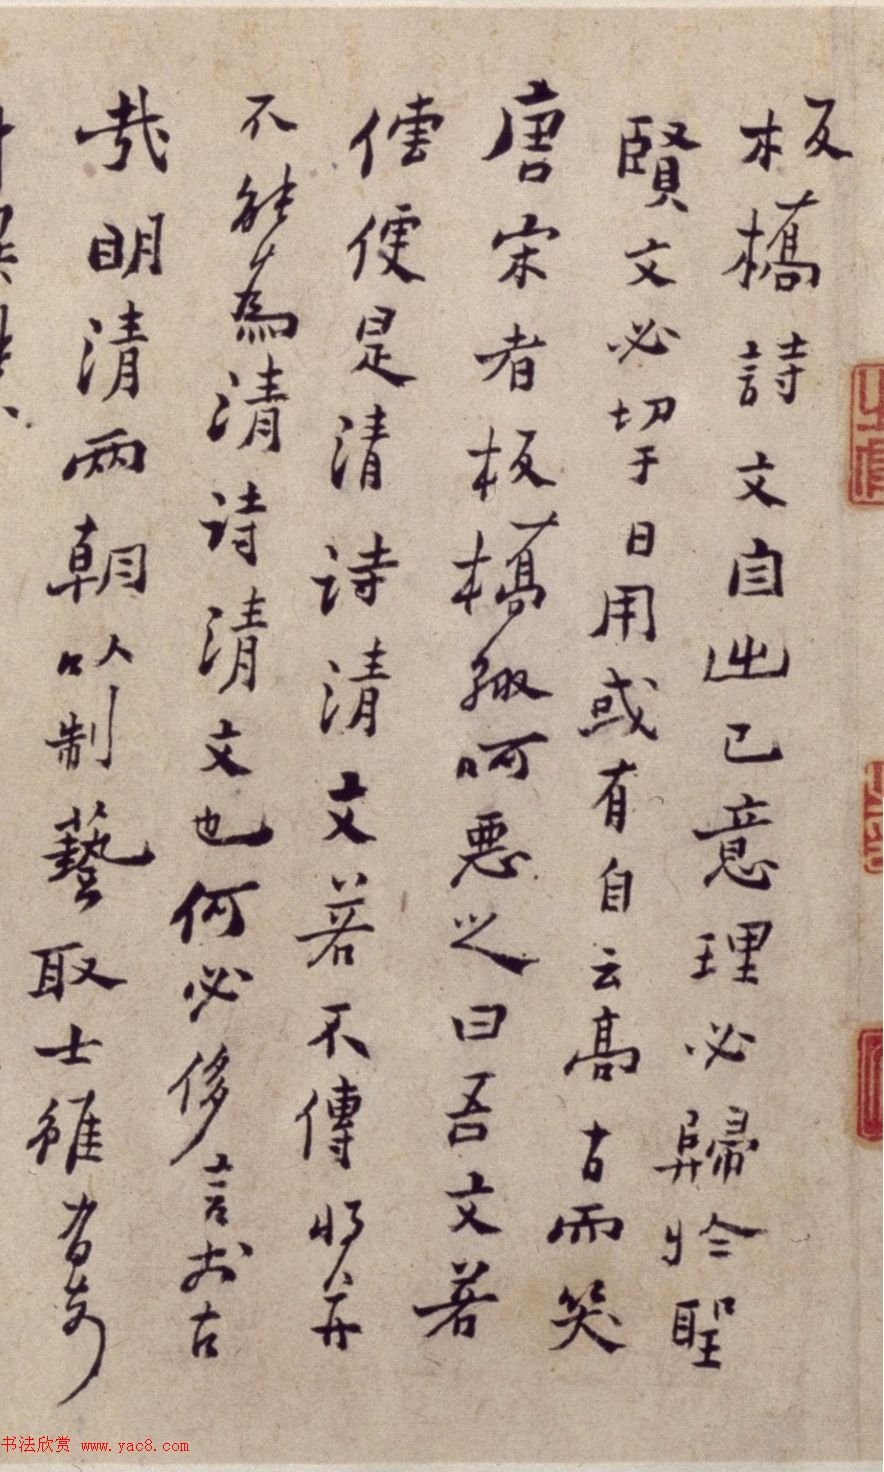 板橋詩文自出己意理必歸於聖
賢文必切于日用或有自云高古而幾
唐宋者板橋輒呵惡之曰吾文若
傳便是清詩清文若不傳將并
不能為清詩清文也何必侈言前古
哉明清兩朝以制藝取士雖有奇
书法欣赏 www.yac8.com